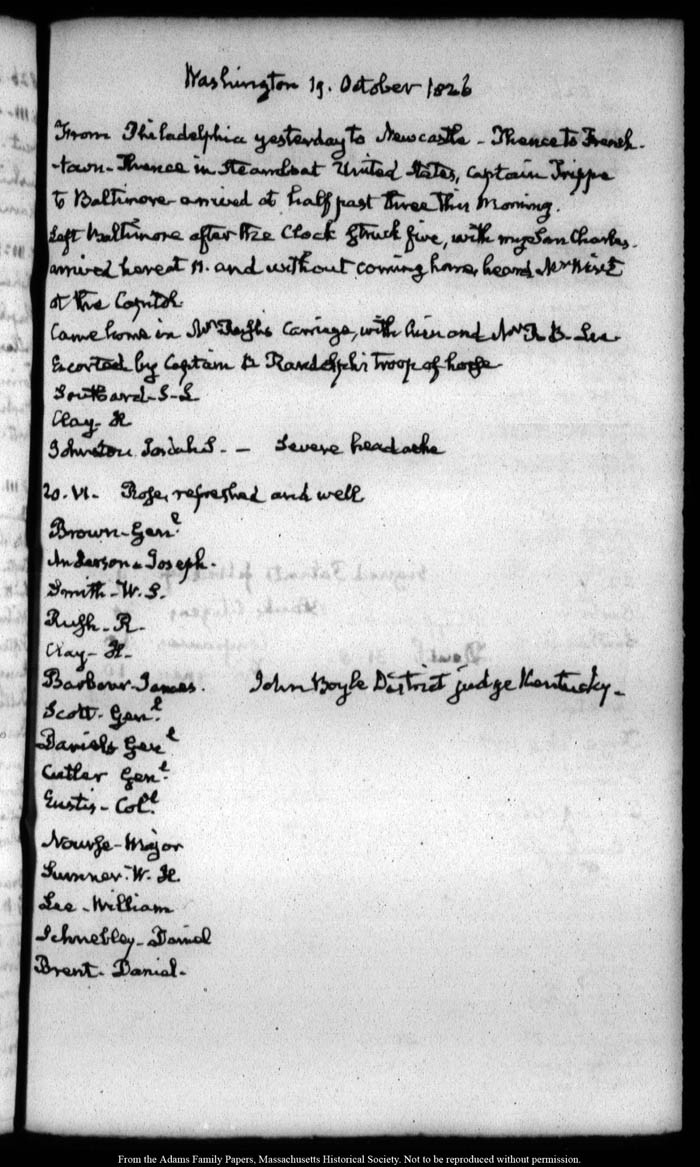 Washington 19. October 1826
From Philadelphia yesterday to Newcastle - Thence to French-
-town - Thence in Steamboat United States, Captain Trippe
to Baltimore - arrived at half past three this Morning.
Left Baltimore after the Clock struck five, with my Son Charles.
arrived here at 11. and without coming home, heard Mr Wirt
at the Capitol
Came home in Mr Carriage, with and Mr R. B. Lee
Escorted by Captain B Randolph's Troop of horse
Southard - S - L
Clay - H
Johnston Josiah S. - Severe headache
20. VI. Rose, refreshed and well
Brown - Genl.
Anderson - Joseph.
Smith - W. S.
Rush - R.
Clay - H.
Barbour - James. John Boyle District judge Kentucky -
Scott - Genl.
Daniels Genl
Cutler Genl.
Eustis - Coll.
Nourse - Major
Sumner. W. H.
Lee - William
Schnebley - Daniel
Brent - Daniel -
From the Adams Family Papers, Massachusetts Historical Society. Not to be reproduced without permission.